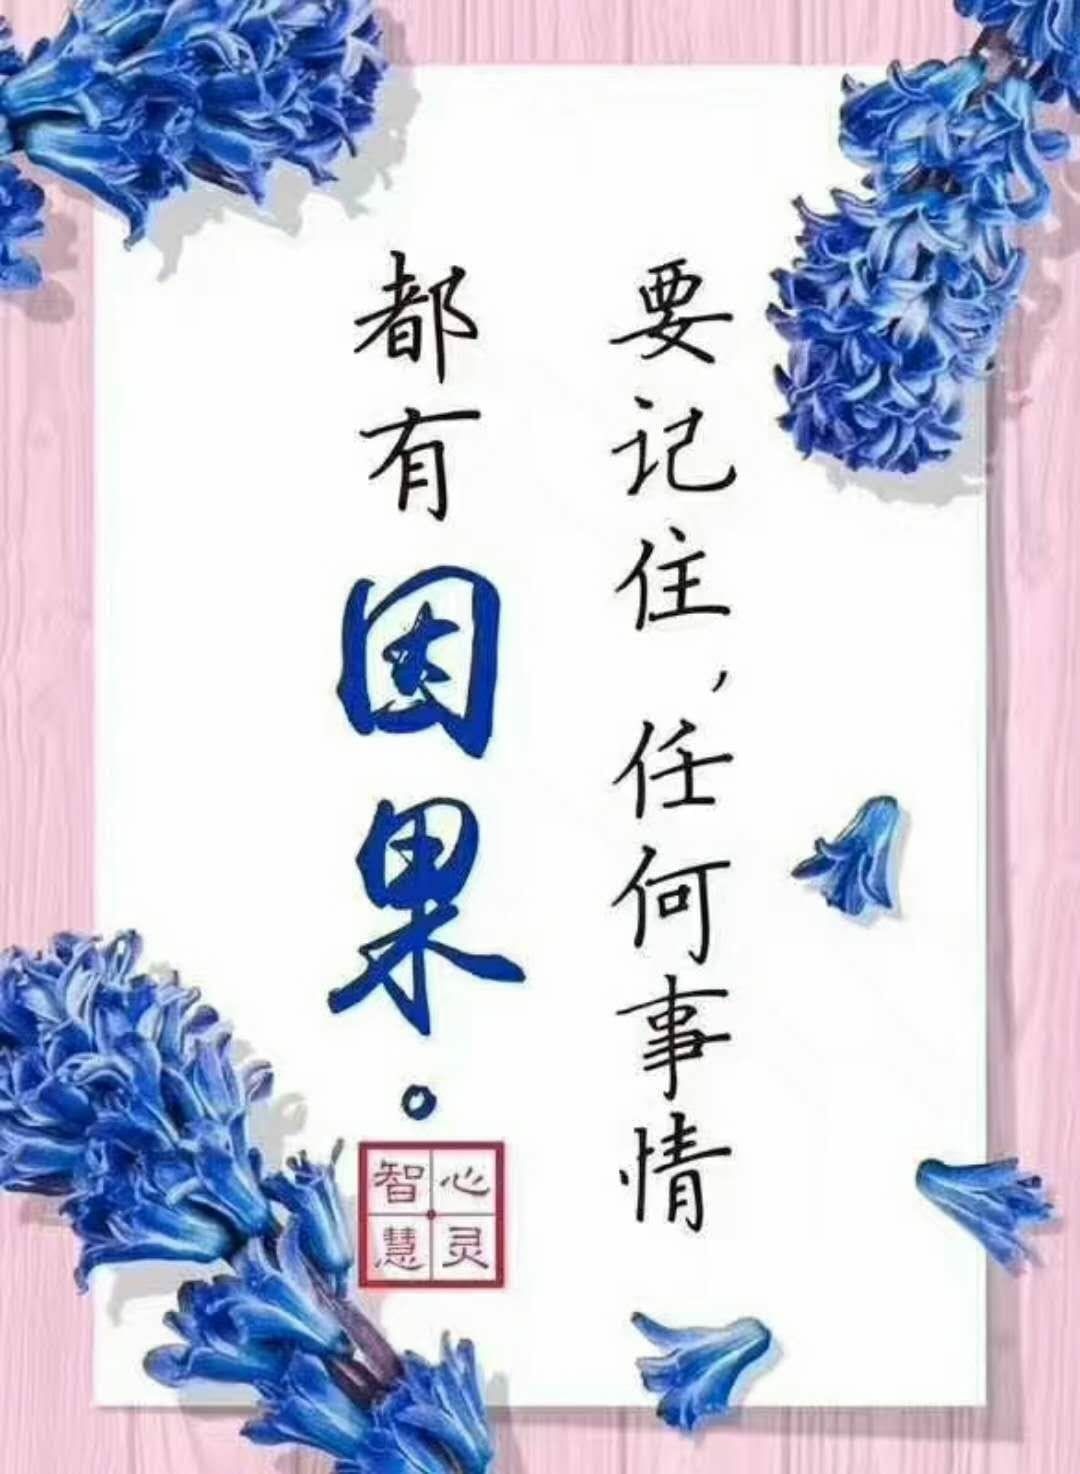 要记住，任何事情
都有因果。
心灵
智慧